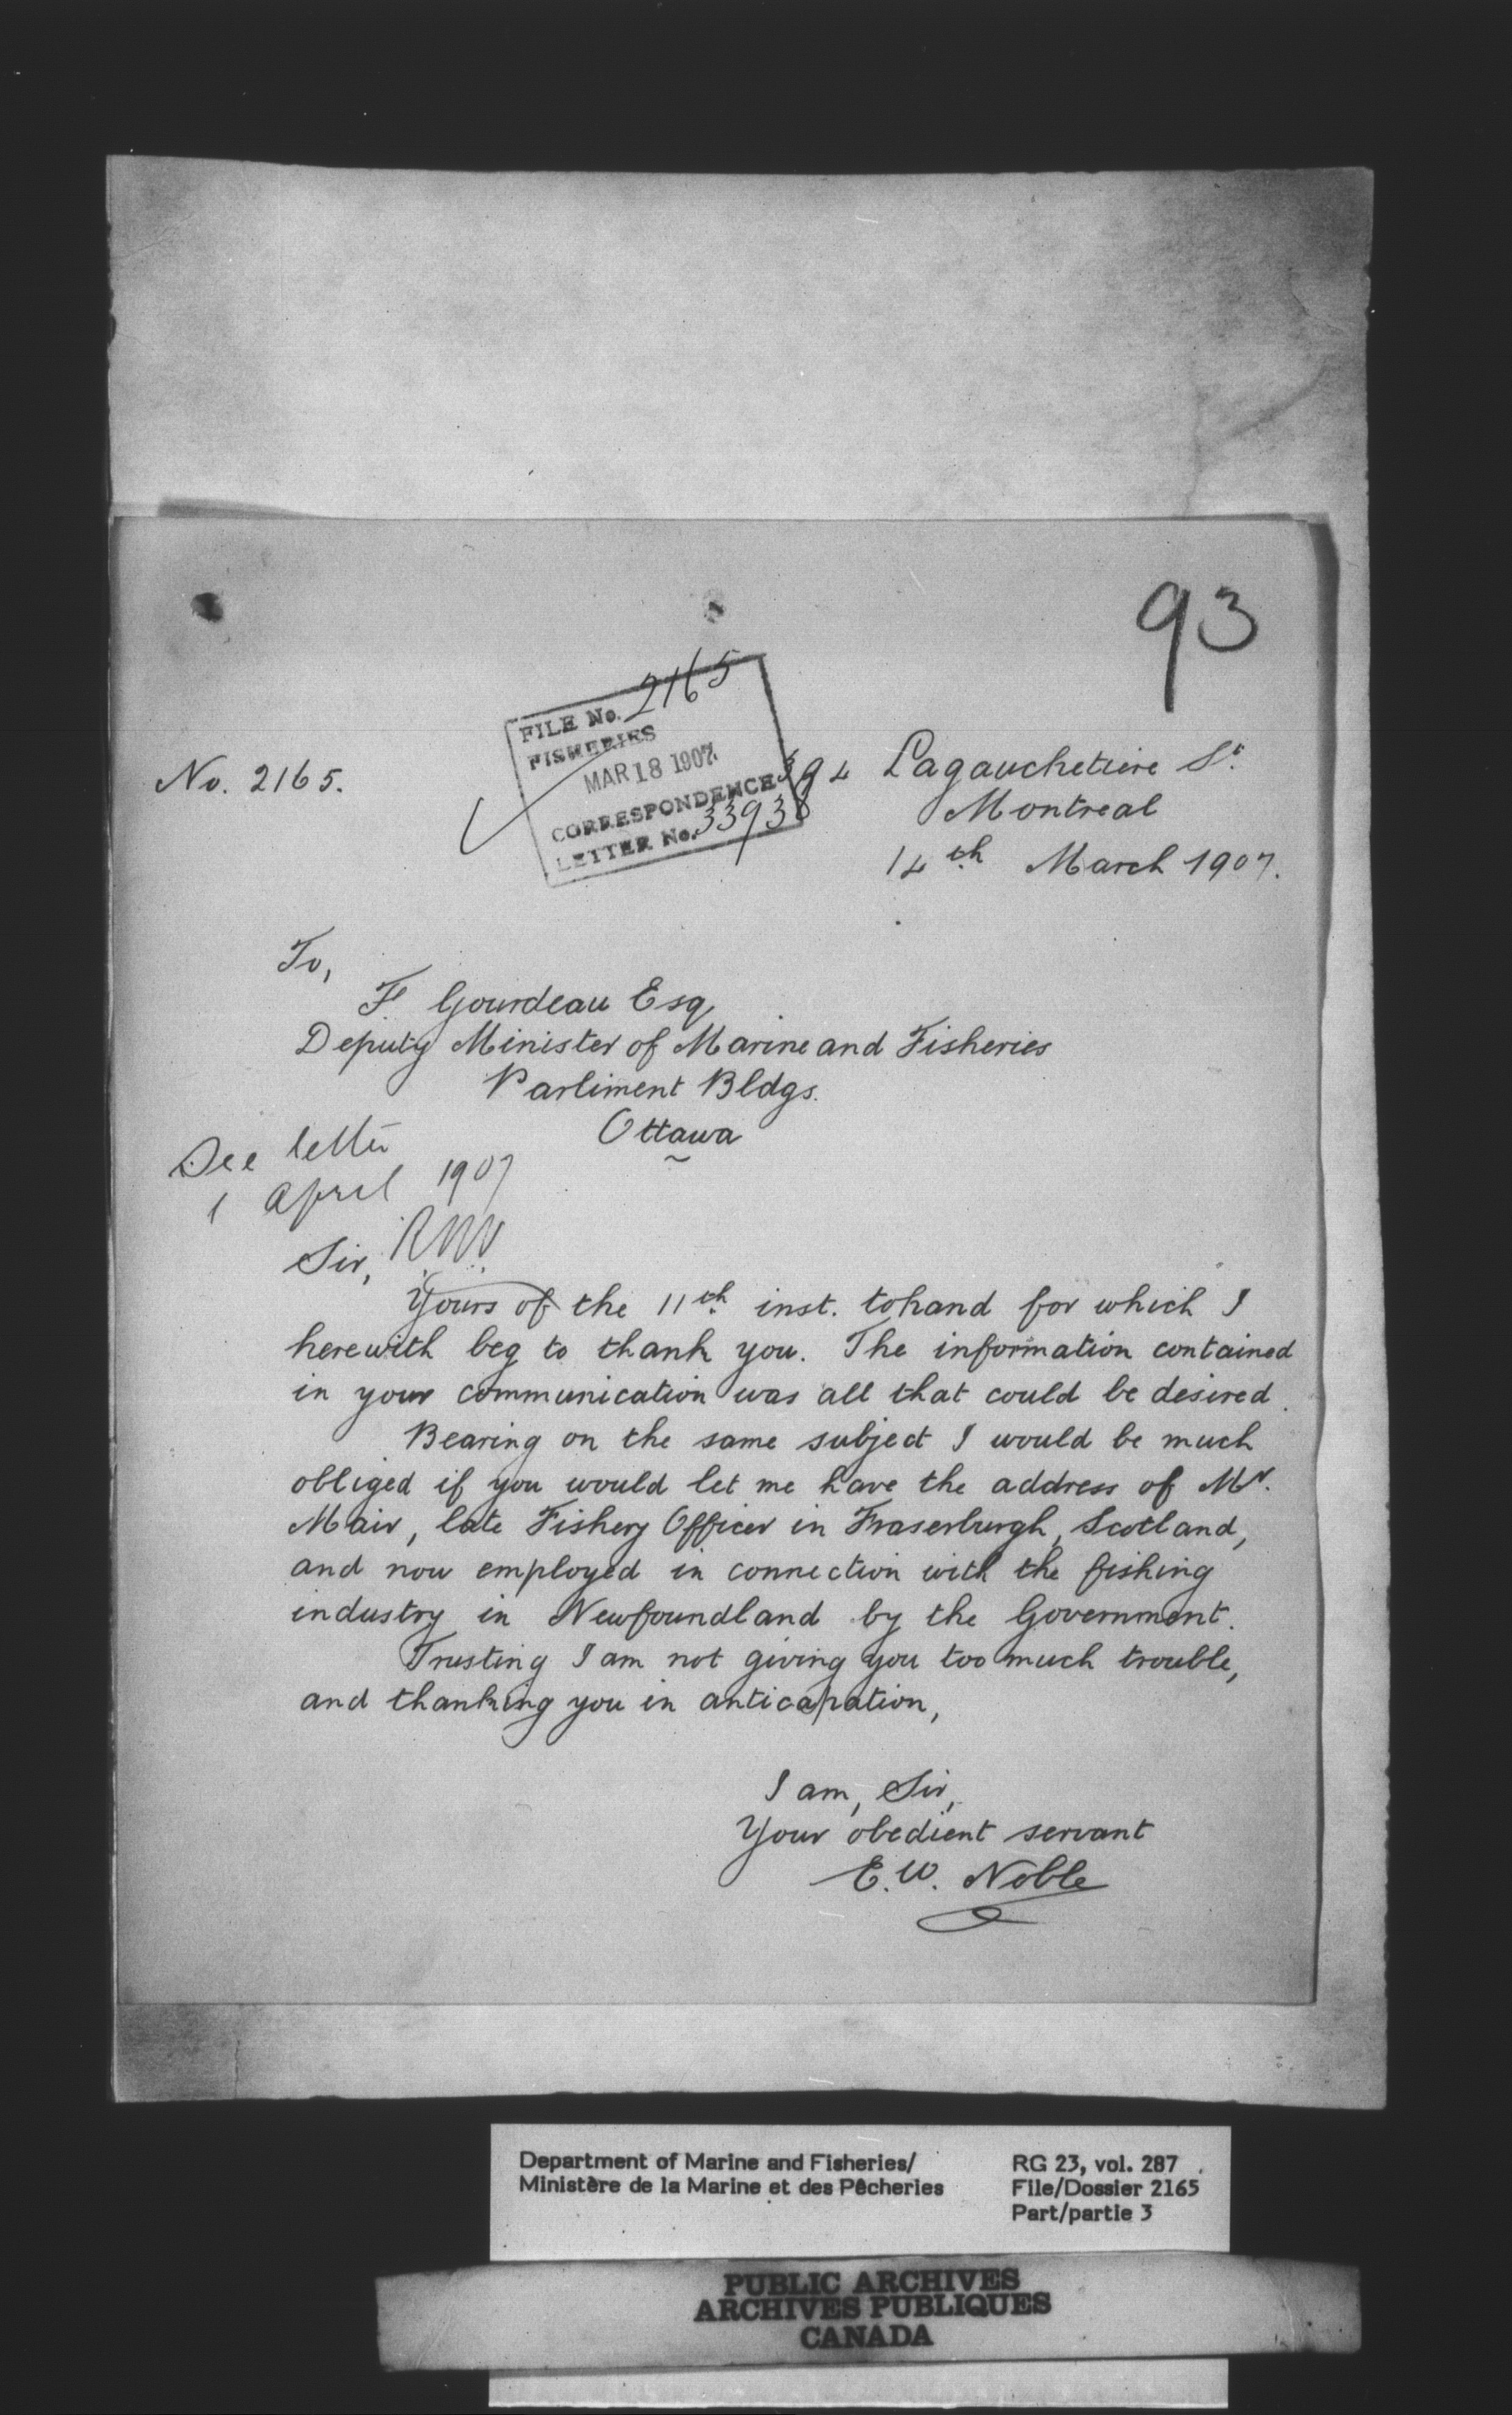 93
FILE No. 2165
FISHERIES
MAR 18 1907
CORRESPONDENCE
LETTER No. 33938
No. 2165.
394 Lagauchetiere St.
Montreal
14th March 1907.
To,
F. Gourdeau Esq
Deputy Minister of Marine and Fisheries
Parliment Bldgs.
Ottawa
See letter
1 April 1907
Sir,
Yours of the 11th inst. to hand for which I
herewith beg to thank you. The information contained
in your communication was all that could be desired.
Bearing on the same subject I would be much
obliged if you would let me have the address of Mr.
Mair, late Fishery Officer in Fraserburgh, Scotland,
and now employed in connection with the fishing
industry in Newfoundland by the Government.
Trusting I am not giving you too much trouble,
and thanking you in anticapation,
I am, Sir,
Your obedient servant
E.W. Noble
Department of Marine and Fisheries/
Ministère de la Marine et des Pêcheries
RG 23, vol. 287
File/Dossier 2165
Part/partie 3
PUBLIC ARCHIVES
ARCHIVES PUBLIQUES
CANADA